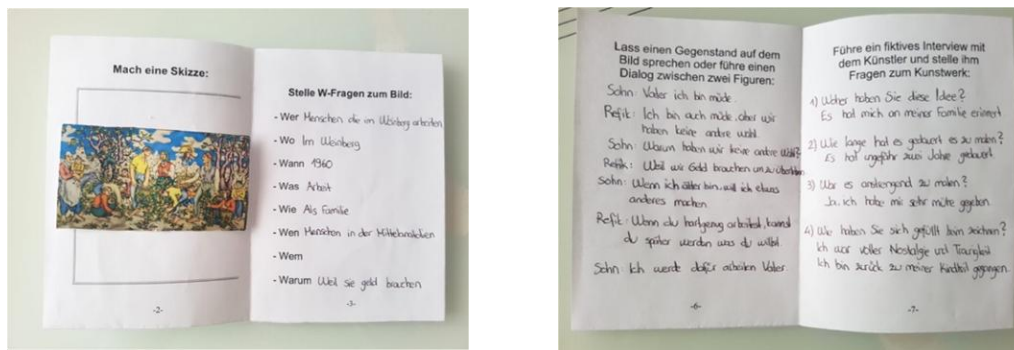 Mach eine Skizze:
-2-
Stelle W-Fragen zum Bild:
- Wer Menschen die im Weinberg arbeiten
- Wo Im Weinberg
- Wann 1960
- Was Arbeit
- Wie Als Familie
- Wen Menschen in der
- Wem
- Warum Weil sie geld brauchen
-3-
Lass einen Gegenstand auf dem
Bild sprechen oder führe einen
Dialog zwischen zwei Figuren:
Sohn: Vater ich bin müde.
Refik: Ich bin auch müde, aber wir
haben keine andere wahl.
Sohn: Warum haben wir keine andere Wahl?
Refik: Weil wir Geld brauchen um zu überleben
Sohn: Wenn ich älter bin, will ich etwas
anderes machen.
Refik: Wenn du hart arbeitest, kannst
du später werden was du willst.
Sohn: Ich werde dafür arbeiten Vater.
-6-
Führe ein fiktives Interview mit
dem Künstler und stelle ihm
Fragen zum Kunstwerk:
1) Woher haben Sie diese Idee?
Es hat mich an meiner Familie erinnert
2) Wie lange hat es gedauert es zu malen?
Es hat ungefähr zwei Jahre gedauert.
3) War es anstrengend zu malen?
Ja, ich habe mir sehr mühe gegeben.
4) Wie haben Sie sich gefüllt beim zeichnen?
Ich war voller Nostalgie und
Ich bin zurück zu meiner Kindheit gegangen.
-7-